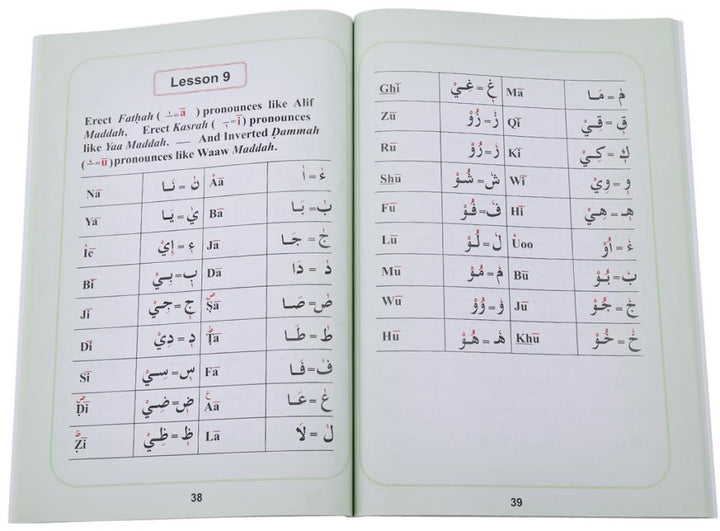 Lesson 9
Erect Fatḥah ( ـٰ =ā ) pronounces like Alif
Maddah, Erect Kasrah ( ـٖ =ī ) pronounces
like Yaa Maddah. __ And Inverted Ḍammah
( ـٗ =ū ) pronounces like Waaw Maddah.
Nā نٰ = نَـا Ȧā ءٰ = اٰ
Yā يٰ = يَـا Bā بٰ = بَـا
İē ءٖ = إِيْ Jā جٰ = جَـا
Bī بٖ = بِـيْ Dā دٰ = دَا
Jī جٖ = جِيْ Ṣā صٰ = صَـا
Dī دٖ = دِيْ Ṭā طٰ = طَـا
Sī سٖ = سِـيْ Fā فٰ = فَـا
Ḍī ضٖ = ضِـيْ Aā عٰ = عَـا
Ẓī ظٖ = ظِـيْ Lā لٰ = لَا
38
Ghī غٖ = غِـيْ Mā مٰ = مَـا
Zū زٗ = زُوْ Qī قٖ = قِـيْ
Rū رٗ = رُوْ Kī كٖ = كِـيْ
Shū شٗ = شُـوْ Wī وٖ = وِيْ
Fū فٗ = فُـوْ Hī هـٖ = هِـيْ
Lū لٗ = لُـوْ U̇oo ءٗ = أُوْ
Mū مٗ = مُـوْ Bū بٗ = بُـوْ
Wū وٗ = وُوْ Jū جٗ = جُـوْ
Hū هـٗ = هُـوْ Khū خٗ = خُـوْ
39